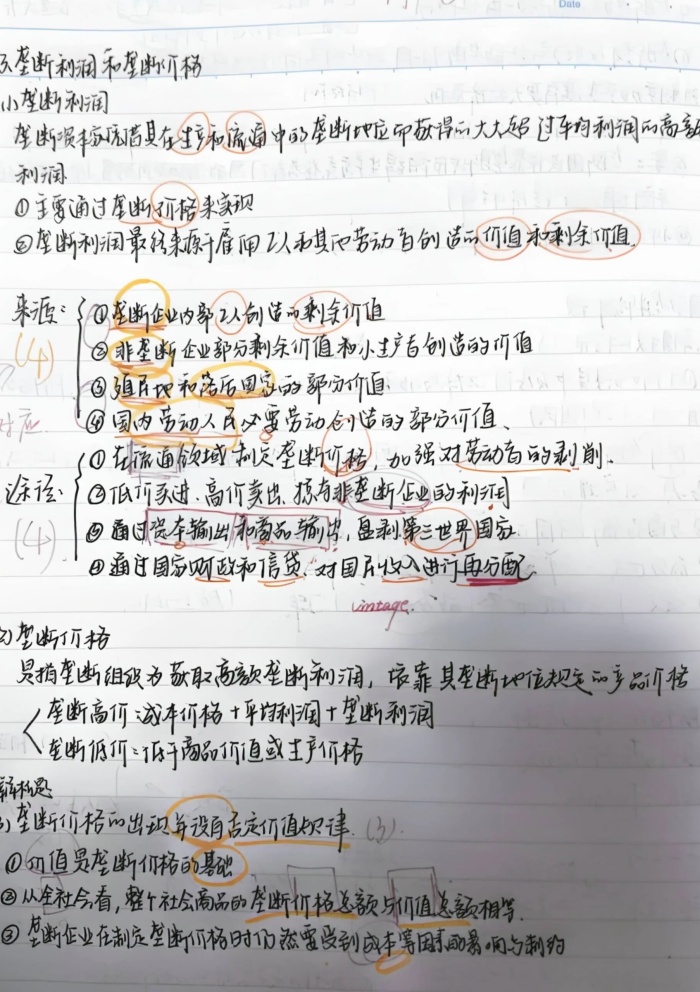 Date
3.垄断利润和垄断价格
(1)垄断利润
垄断资本家凭借其在生产和流通中的垄断地位而获得的大大超过平均利润的高额
利润
①主要通过垄断价格来实现
②垄断利润最终来源于雇佣工人和其他劳动者创造的价值和剩余价值.
来源:
(4)
①垄断企业内部工人创造的剩余价值
②非垄断企业部分剩余价值和小生产者创造的价值
③殖民地和落后国家的部分价值.
④国内劳动人民必要劳动创造的部分价值、
对应
途径:
(4)
①在流通领域制定垄断价格,加强对劳动者的剥削.
②低价买进、高价卖出,非垄断企业的利润
③通过资本输出和商品输出,盘剥第三世界国家
④通过国家财政和信贷、对国民收入进行再分配
vintage.
(2)垄断价格
是指垄断组织为获取高额垄断利润,依靠其垄断地位规定的产品价格
垄断高价:成本价格+平均利润+垄断利润
垄断低价:低于商品价值或生产价格
解析题
(3)垄断价格的出现并没有否定价值规律.(3)
①价值是垄断价格的基础
②从全社会看,整个社会商品的垄断价格总额与价值总额相等.
③垄断企业在制定垄断价格时仍然要受到成本等因素的影响与制约